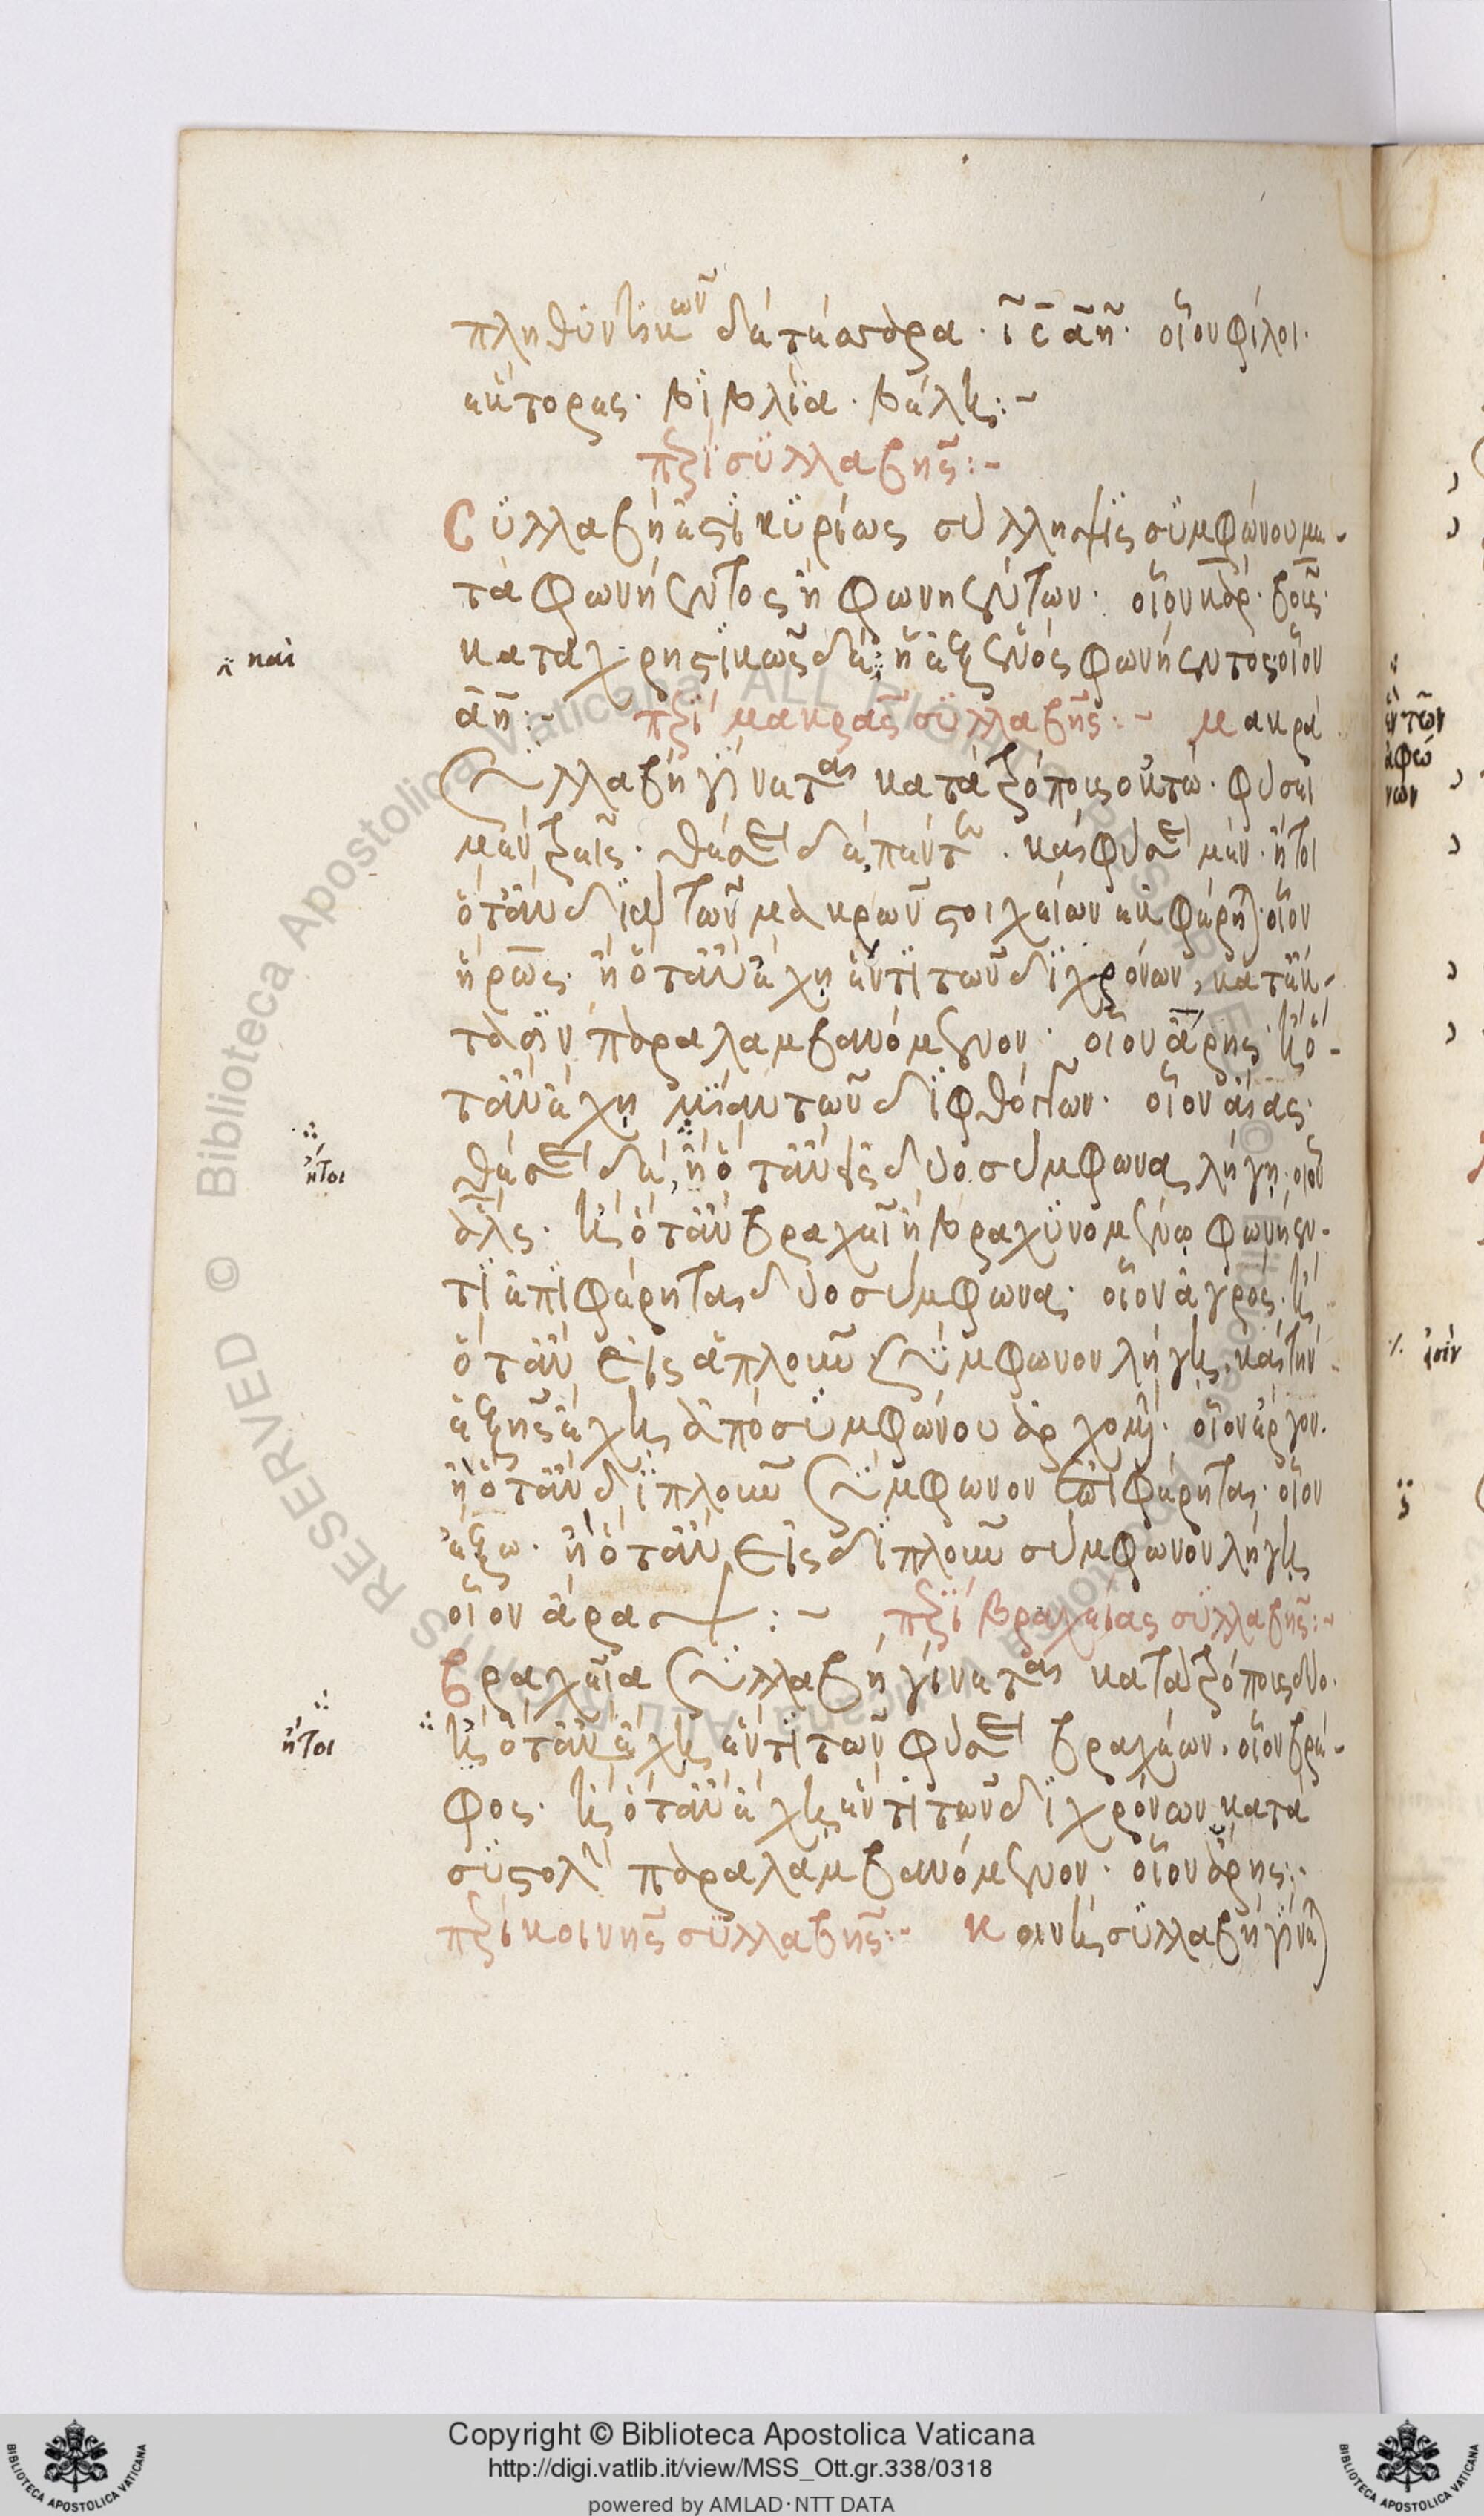 πληθυντικῶν δὲ τέσσαρα· ῑ ε̄ ᾱ η̄· οἷον φίλοι·
ἕκτορες· βιβλία· βέλη:~
περὶ συλλαβῆς:~
Συλλαβή ἐστι κυρίως σύλληψις συμφώνου με-
τὰ φωνήεντος ἢ φωνηέντων· οἷον κάρ· βοῦς·
καταχρηστικῶς δὲ ἡ ἐξ ἑνὸς φωνήεντος· οἷον
ᾱ η̄:~ περὶ μακρᾶς συλλαβῆς:~ μακρὰ
συλλαβὴ γίνεται κατὰ τρόπους ὀκτώ· φύσει
μὲν τρεῖς· θέσει δὲ πέντε· καὶ φύσει μὲν· ἤτοι
ὅταν διὰ τῶν μακρῶν στοιχείων ἐκφέρηται· οἷον
ἥρως· ἢ ὅταν ἔχῃ ἕν τι τῶν διχρόνων, κατ' ἔκ-
τασιν παραλαμβανόμενον· οἷον ἄρης· ἢ ὅ-
ταν ἔχῃ μίαν τῶν διφθόγγων· οἷον αἴας·
θέσει δὲ, ἢ ὅταν εἰς δύο σύμφωνα λήγῃ· οἷον
ἅλς· ἢ ὅταν βραχεῖ ἢ βραχυνομένῳ φωνήεν-
τι ἐπιφέρηται δύο σύμφωνα· οἷον ἀγρός· ἢ
ὅταν εἰς ἁπλοῦν σύμφωνον λήγῃ, καὶ τὴν
ἑξῆς ἔχῃ ἀπὸ συμφώνου ἀρχομένην· οἷον ἔργον·
ἢ ὅταν διπλοῦν σύμφωνον ἐπιφέρηται· οἷον
ἔξω· ἢ ὅταν εἰς διπλοῦν σύμφωνον λήγῃ
οἷον ἄραψ:~ περὶ βραχείας συλλαβῆς:~
βραχεῖα συλλαβὴ γίνεται κατὰ τρόπους δύο·
ἢ ὅταν ἔχῃ ἕν τι τῶν φύσει βραχέων· οἷον βρέ-
φος· ἢ ὅταν ἔχῃ ἕν τι τῶν διχρόνων κατὰ
συστολὴν παραλαμβανόμενον· οἷον ἄρης:·
περὶ κοινῆς συλλαβῆς:~ κοινὴ συλλαβὴ γίνεται
καὶ
ἤτοι
ἤτοι
Copyright © Biblioteca Apostolica Vaticana
http://digi.vatlib.it/view/MSS_Ott.gr.338/0318
powered by AMLAD·NTT DATA